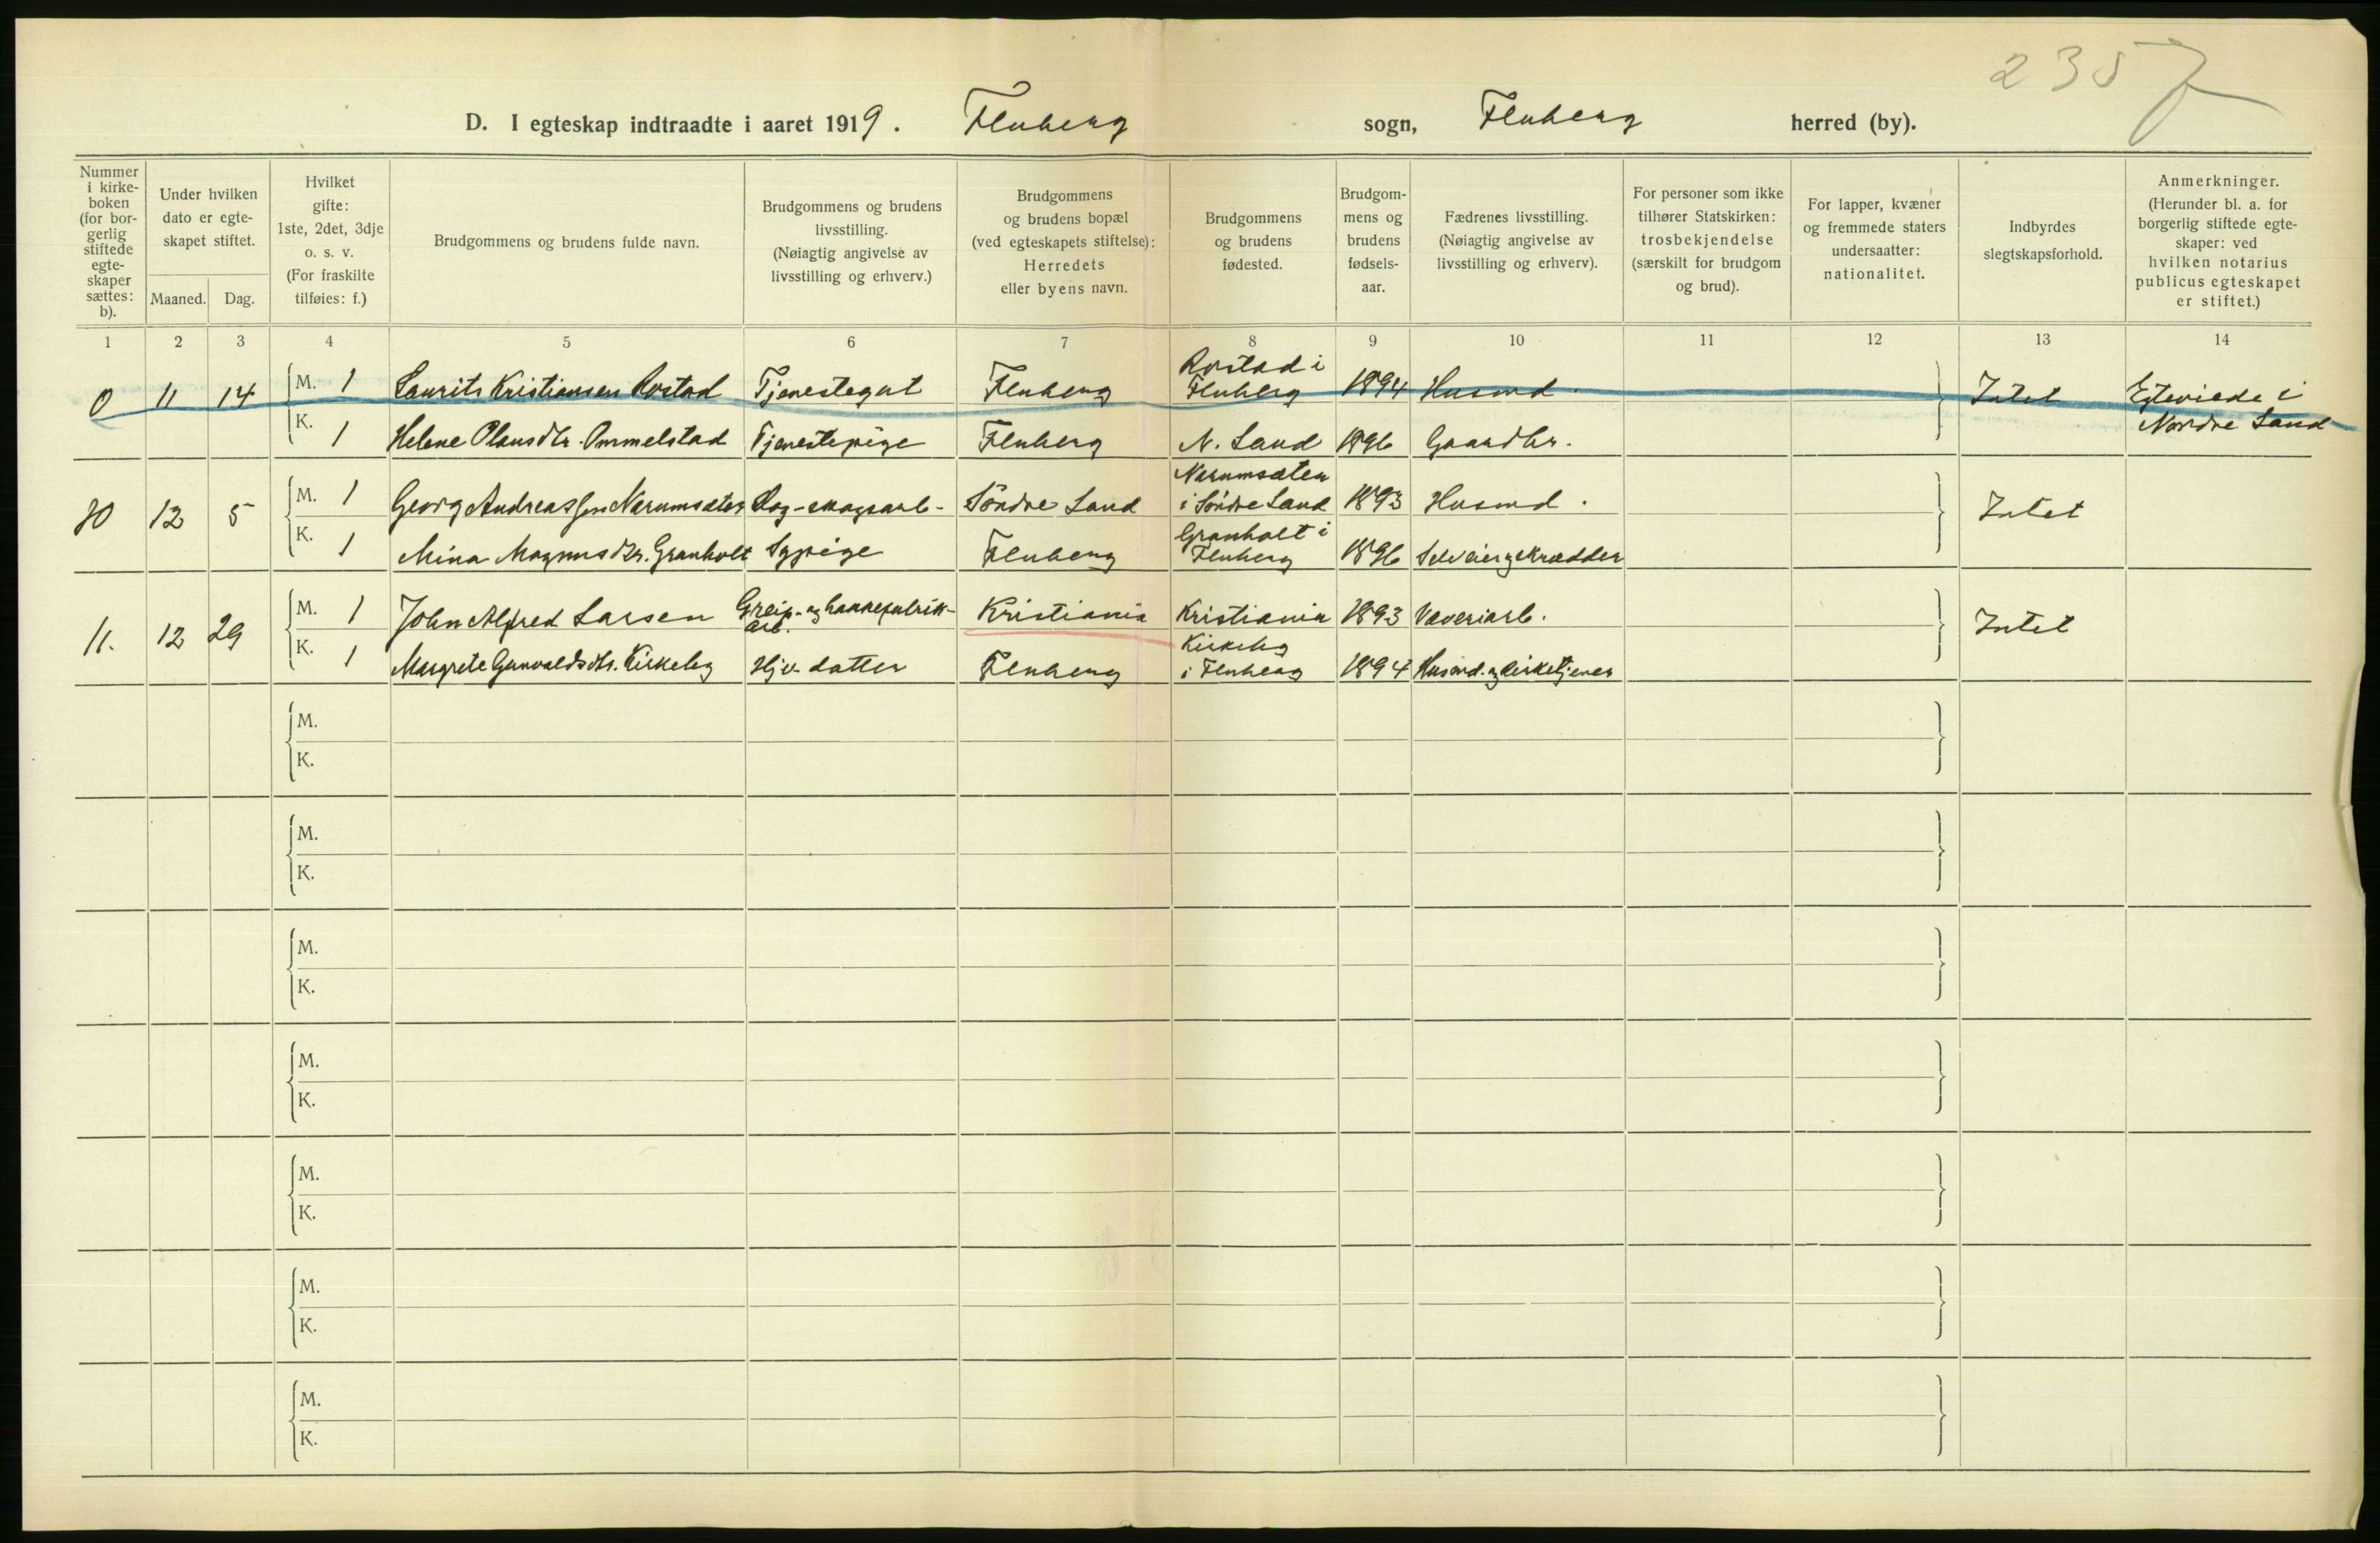 235
D. I egteskap indtraadte i aaret 1919. Fluberg sogn, Fluberg herred (by).
Nummer
i kirke-
boken
(for bor-
gerlig
stiftede
egte-
skaper
sættes:
b).
Under hvilken
dato er egte-
skapet stiftet.
Maaned. Dag.
Hvilket
gifte:
1ste, 2det, 3dje
o. s. v.
(For fraskilte
tilføies: f.)
Brudgommens og brudens fulde navn.
Brudgommens og brudens
livsstilling.
(Nøiagtig angivelse av
livsstilling og erhverv.)
Brudgommens
og brudens bopæl
(ved egteskapets stiftelse):
Herredets
eller byens navn.
Brudgommens
og brudens
fødested.
Brudgom-
mens og
brudens
fødsels-
aar.
Fædrenes livsstilling.
(Nøiagtig angivelse av
livsstilling og erhverv).
For personer som ikke
tilhører Statskirken:
trosbekjendelse
(særskilt for brudgom
og brud).
For lapper, kvæner
og fremmede staters
undersaatter:
nationalitet.
Indbyrdes
slegtskapsforhold.
Anmerkninger.
(Herunder bl. a. for
borgerlig stiftede egte-
skaper: ved
hvilken notarius
publicus egteskapet
er stiftet.)
1 2 3 4 5 6 7 8 9 10 11 12 13 14
Rostad i
0 11 14 M. 1 Laurits Kristiansen Rostad Tjenestegut Fluberg Fluberg 1894 Husmd. Intet Egteviede i
Nordre Land
K. 1 Helene Olausdtr. Ommelstad Tjenestepige Fluberg N. Land 1896 Gaardbr.
Narumsæter
10 12 5 M. 1 Georg Andreassen Narumsæter Dag-skogsarb. Søndre Land i Søndre Land 1893 Husmd. Intet
Granholt i
K. 1 Mina Magnusdtr. Granholt Sypige Fluberg Fluberg 1896 Selveier og skrædder
11. 12 29 M. 1 John Alfred Larsen Greip- og hakkefabrik- Kristiania Kristiania 1893 Væveriarb. Intet
arb.
Kirkeby
K. 1 Margrete Gunvaldsdtr. Kirkeby Hjv. datter Fluberg i Fluberg 1894 Husmd. og kirketjener
M.
K.
M.
K.
M.
K.
M.
K.
M.
K.
M.
K.
M.
K.